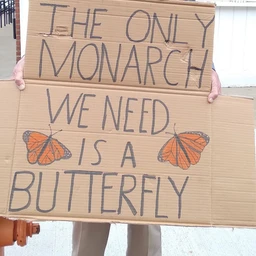 THE ONLY
MONARCH
WE NEED
IS A
BUTTERFLY